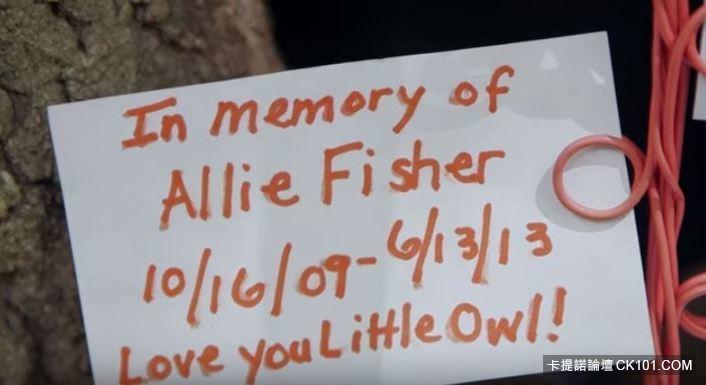 In memory of
Allie Fisher
10/16/09-6/13/13
Love you Little Owl!
卡提諾論壇 CK101.COM